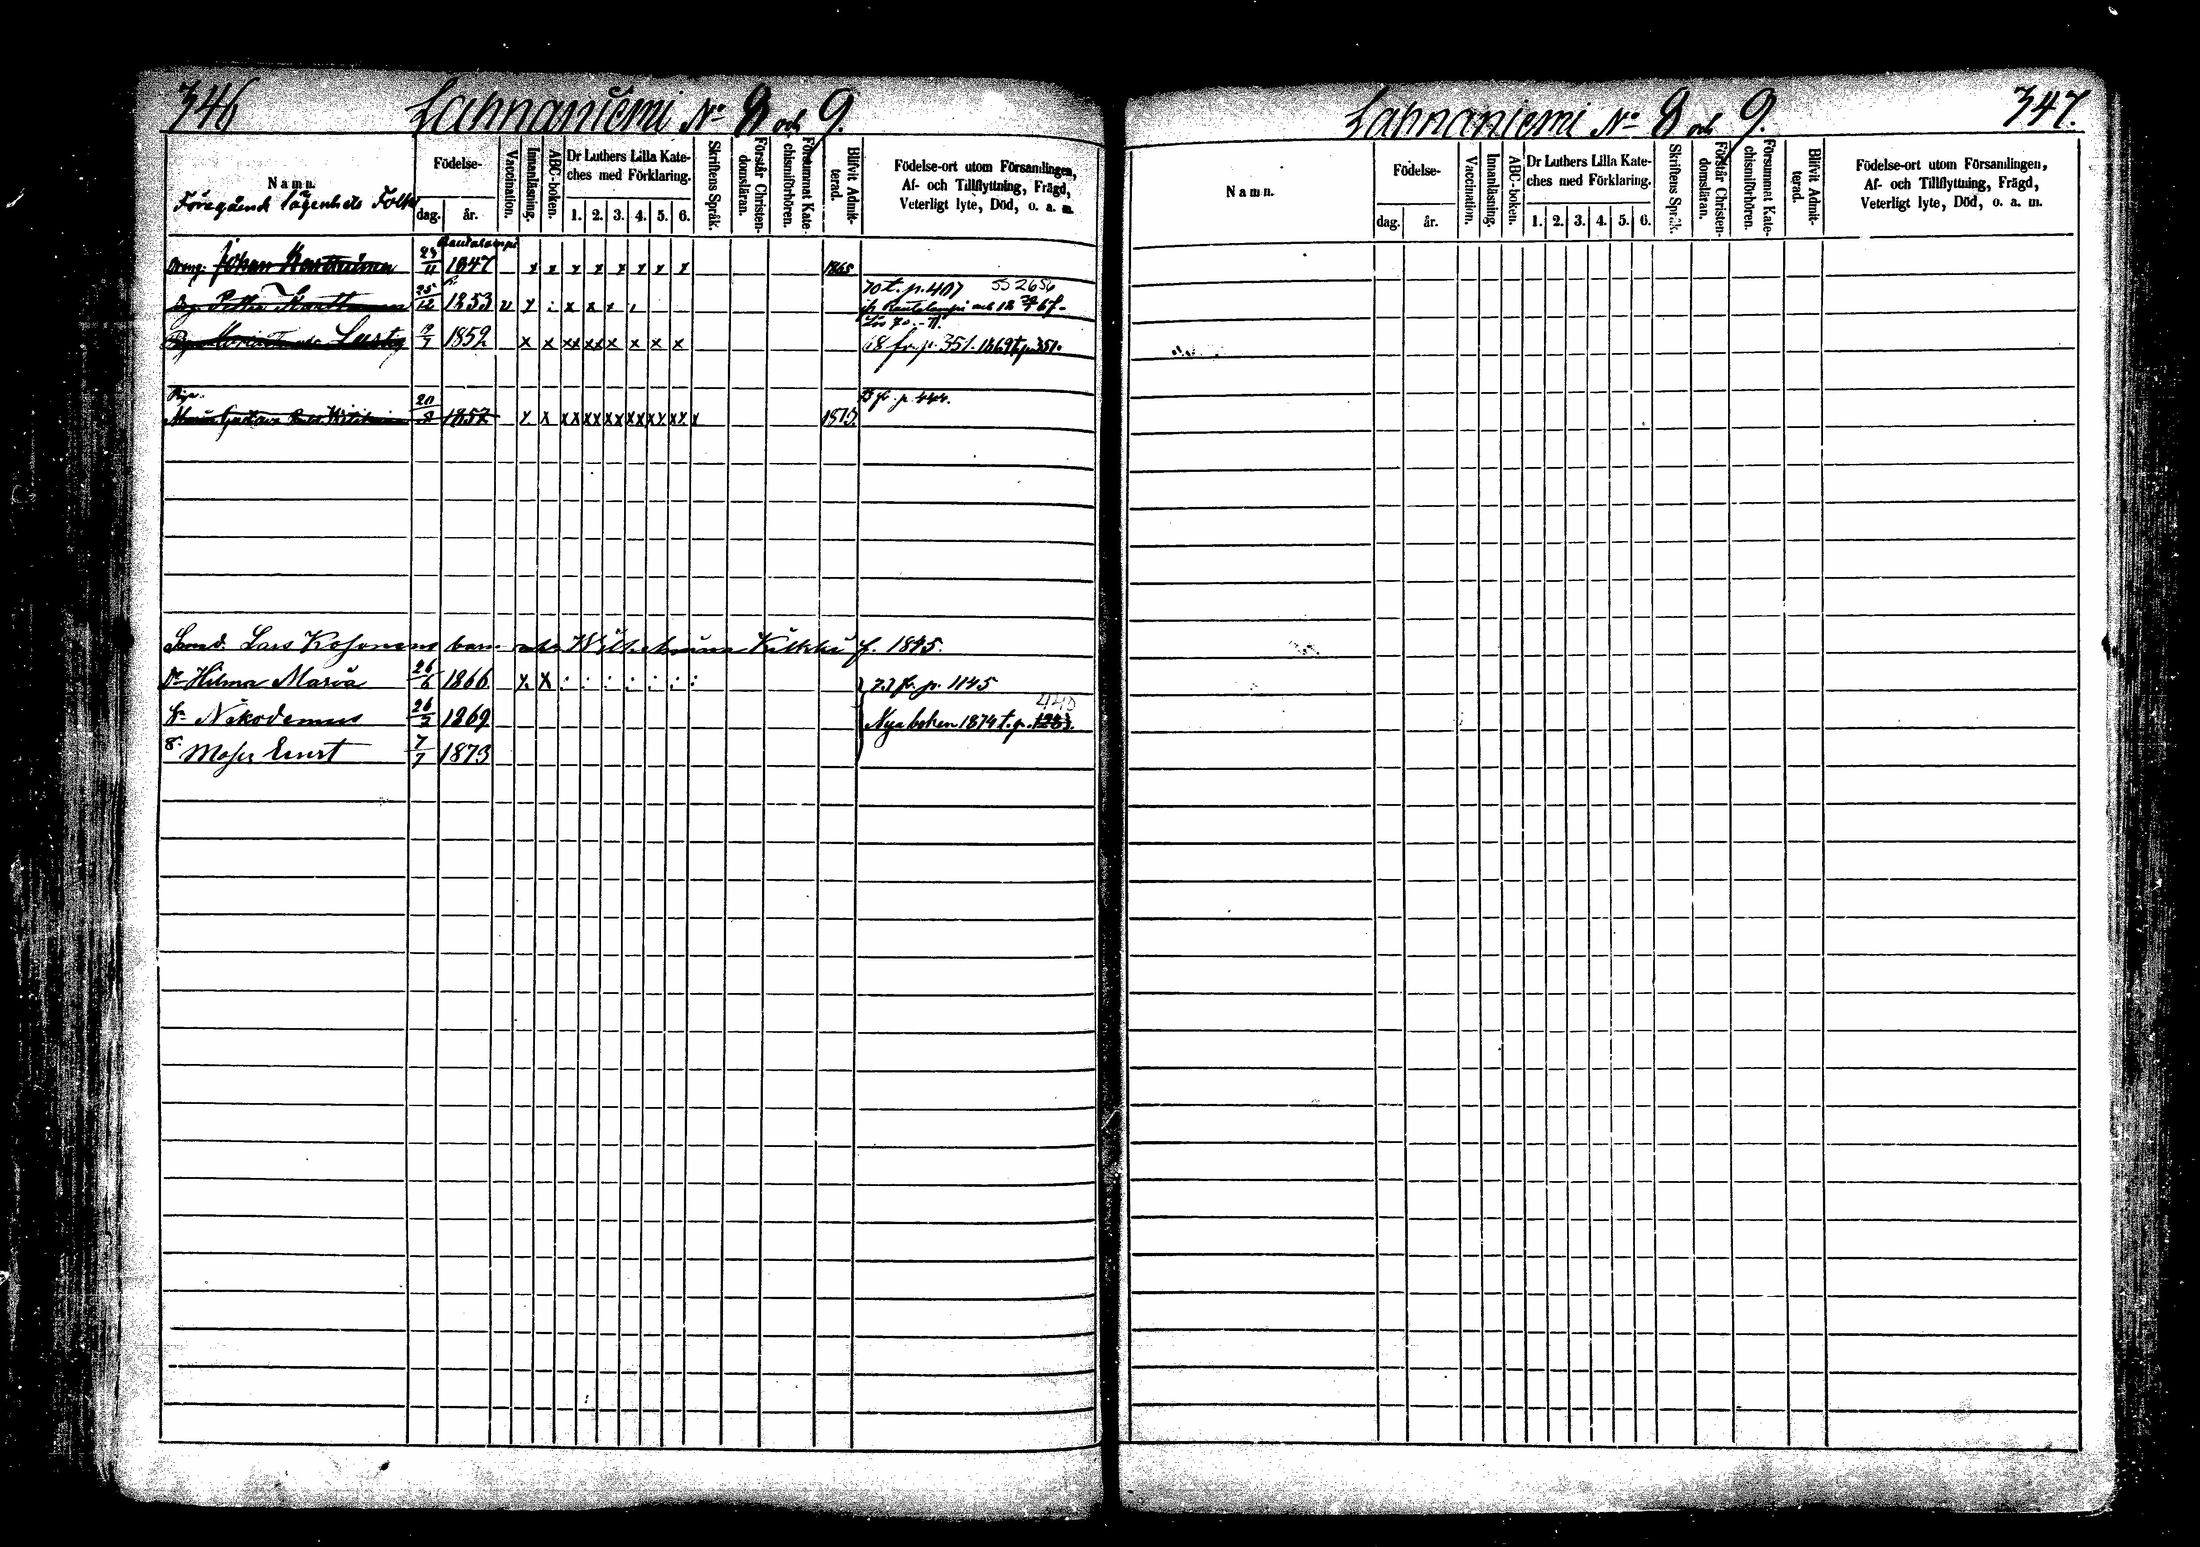 346
Lahnaniemi No 8 och 9.
Namn.
Föregående Lägenhets Folk
Födelse-
dag.
år.
Vaccination.
Innanläsning.
ABC-boken.
Dr Luthers Lilla Kate-
ches med Förklaring.
1. 2. 3. 4. 5. 6.
Skriftens Språk.
Förstår Christen-
domsläran.
Försummat Kate-
chismiförhören.
Blifvit Admit-
terad.
Födelse-ort utom Församlingen,
Af- och Tillflyttning, Frägd,
Veterligt lyte, Död, o. a. m.
Rautalampi
Dreng. Johan 23/11 1847 x x x x x x x x 1865
25/12 1853 v x : x x x
70 t. p. 407 552656
fr Rautalampi
19/7 1852 x x xx xx x x x x
68 fr. p. 351. 1869 t. p. 351.
Pig.
20/8 1852 x x xx xx xx xx xx xx x 1873.
73 fr. p. 444.
Lars Kosonens barn Wilhelmina f. 1845.
Dr Hilma Maria 26/6 1866 x. X : : : : : : :
73 fr. p. 1145
Sr Nikodemus 26/2 1869
440
Nya boken 1874 t. p.
S. Moses Ernst 7/7 1873
Lahnaniemi No 8 och 9.
347.
Namn.
Födelse-
dag.
år.
Vaccination.
Innanläsning.
ABC-boken.
Dr Luthers Lilla Kate-
ches med Förklaring.
1. 2. 3. 4. 5. 6.
Skriftens Språk.
Förstår Christen-
domsläran.
Försummat Kate-
chismiförhören.
Blifvit Admit-
terad.
Födelse-ort utom Församlingen,
Af- och Tillflyttning, Frägd,
Veterligt lyte, Död, o. a. m.